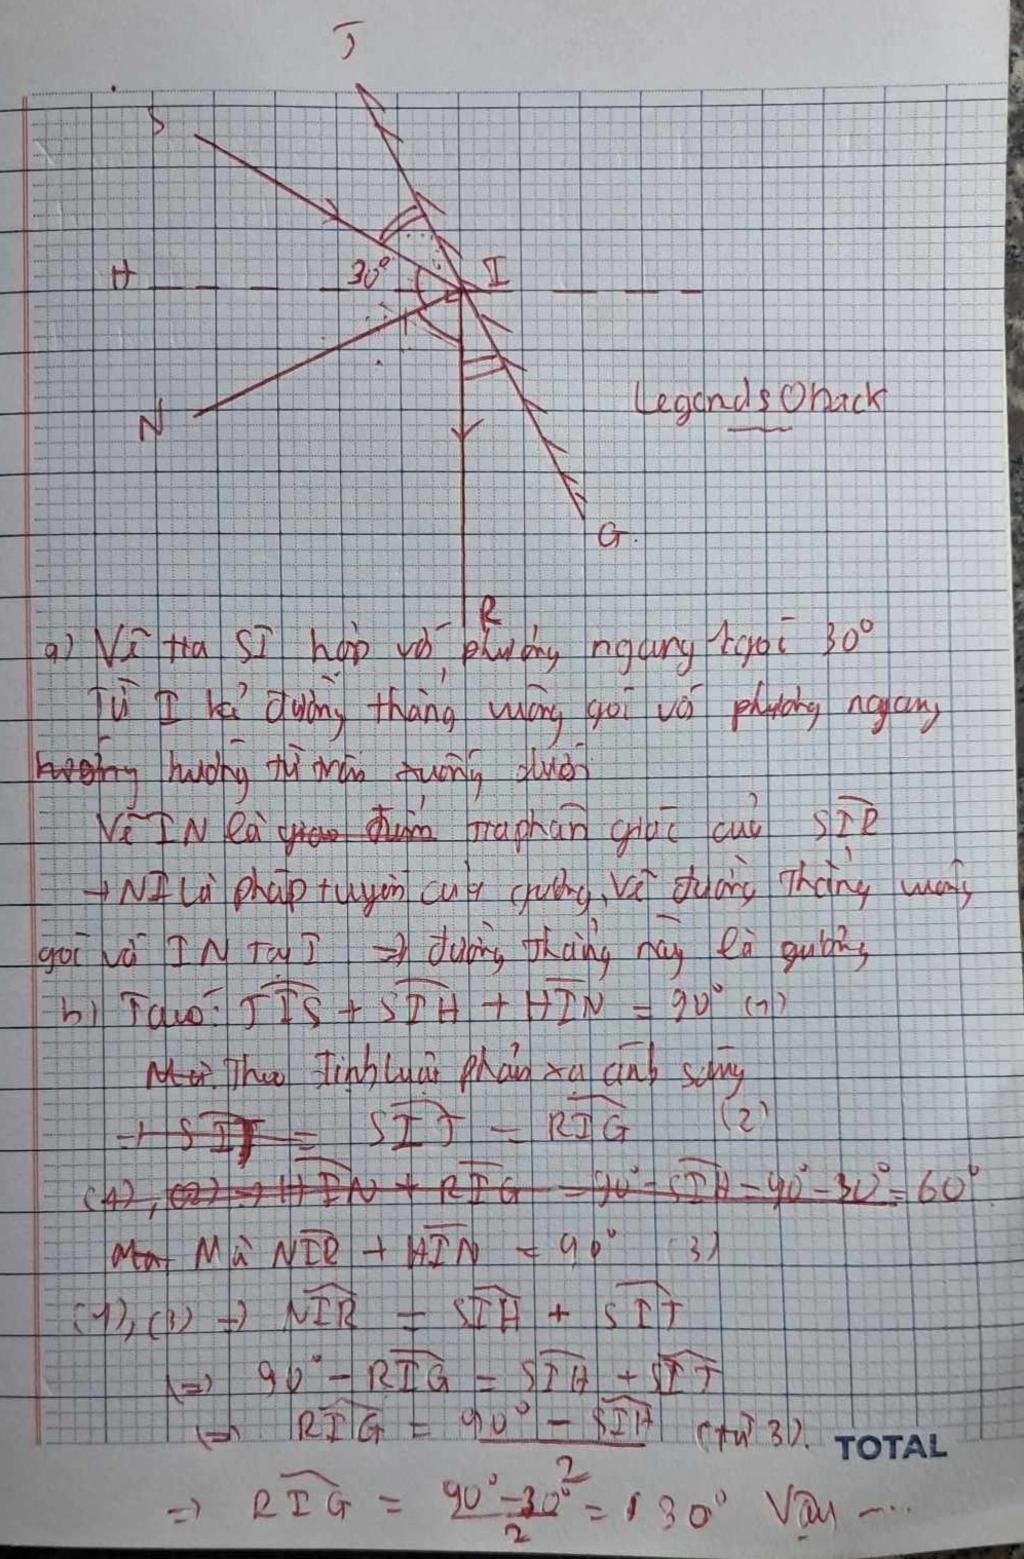 J
S
H
30°
I
N
LegendsOhack
G.
R
a) Vẽ tia SI hợp với phương ngang 1 góc 30°
Từ I kẻ đường thẳng vuông góc với phương ngang
hướng từ trên xuống dưới
Vẽ IN là tia phân giác của SIR
→ NI là pháp tuyến của gương, Vẽ đường thẳng vuông
góc với IN tại I => đường thẳng này là gương
b) Ta có: JIS + SIH + HIN = 90° (1)
Theo định luật phản xạ ánh sáng
→ SIJ = SIJ = RIG (2)
(1), (2) => HIN + RIG = 90° - SIH = 90° - 30° = 60°
Mà NIR + HIN = 90° (3)
(1), (3) → NIR = SIH + SIJ
(=) 90° - RIG = SIH + SIJ
(=) RIG = 90° - SIH / 2 (từ 3).
TOTAL
=> RIG = 90° - 30° / 2 = 30° Vậy ....